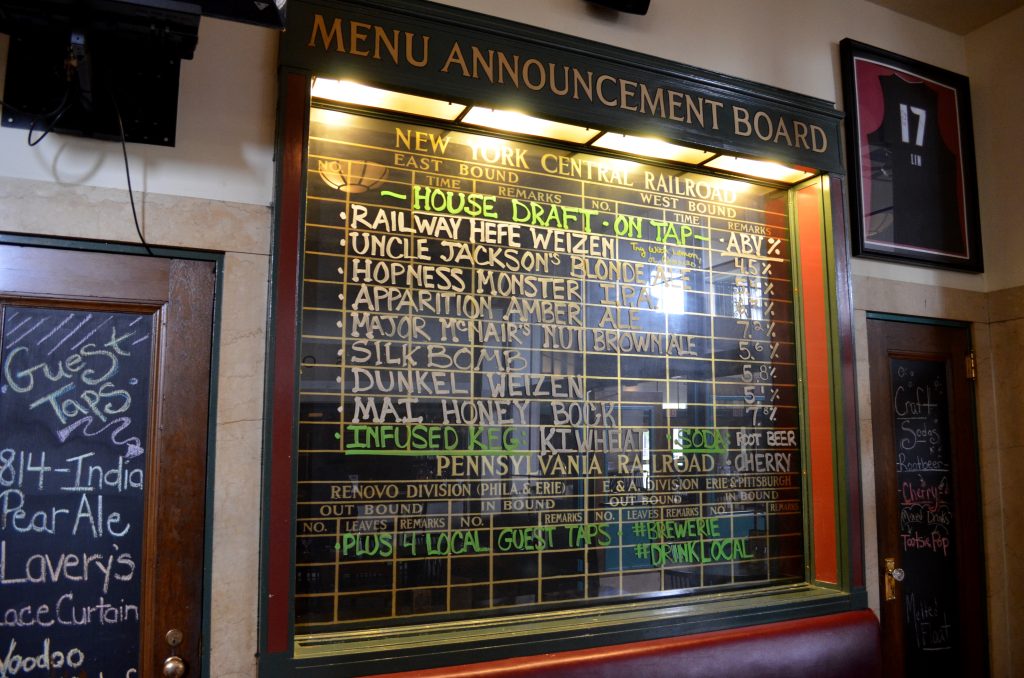 MENU ANNOUNCEMENT BOARD
NEW YORK CENTRAL RAILROAD
EAST BOUND WEST BOUND
NO. TIME REMARKS NO. TIME REMARKS
~HOUSE DRAFT · ON TAP~
· ABV %
· RAILWAY HEFE WEIZEN Try with
· UNCLE JACKSON'S BLONDE ALE 4.5 %
· HOPNESS MONSTER IPA
· APPARITION AMBER ALE
· MAJOR MCNAIR'S NUT BROWN ALE
· SILK BOMB
· DUNKEL WEIZEN
· MAI HONEY BOCK
· INFUSED KEG: KIWHEAT · SODA: ROOT BEER
PENNSYLVANIA RAILROAD · CHERRY
RENOVO DIVISION (PHILA. & ERIE) E. & A. DIVISION ERIE & PITTSBURGH
OUT BOUND IN BOUND OUT BOUND IN BOUND
NO. LEAVES REMARKS NO. REMARKS NO. LEAVES REMARKS NO. REMARKS
· PLUS 4 LOCAL GUEST TAPS · #BREWERIE
#DRINKLOCAL
Guest
Taps
814-India
Pear Ale
Lavery's
Lace Curtain
Voodoo
17
LIN
Craft
Sodas
Rootbeer
Cherry
Mixed Drinks
Tootsie Pop
Float